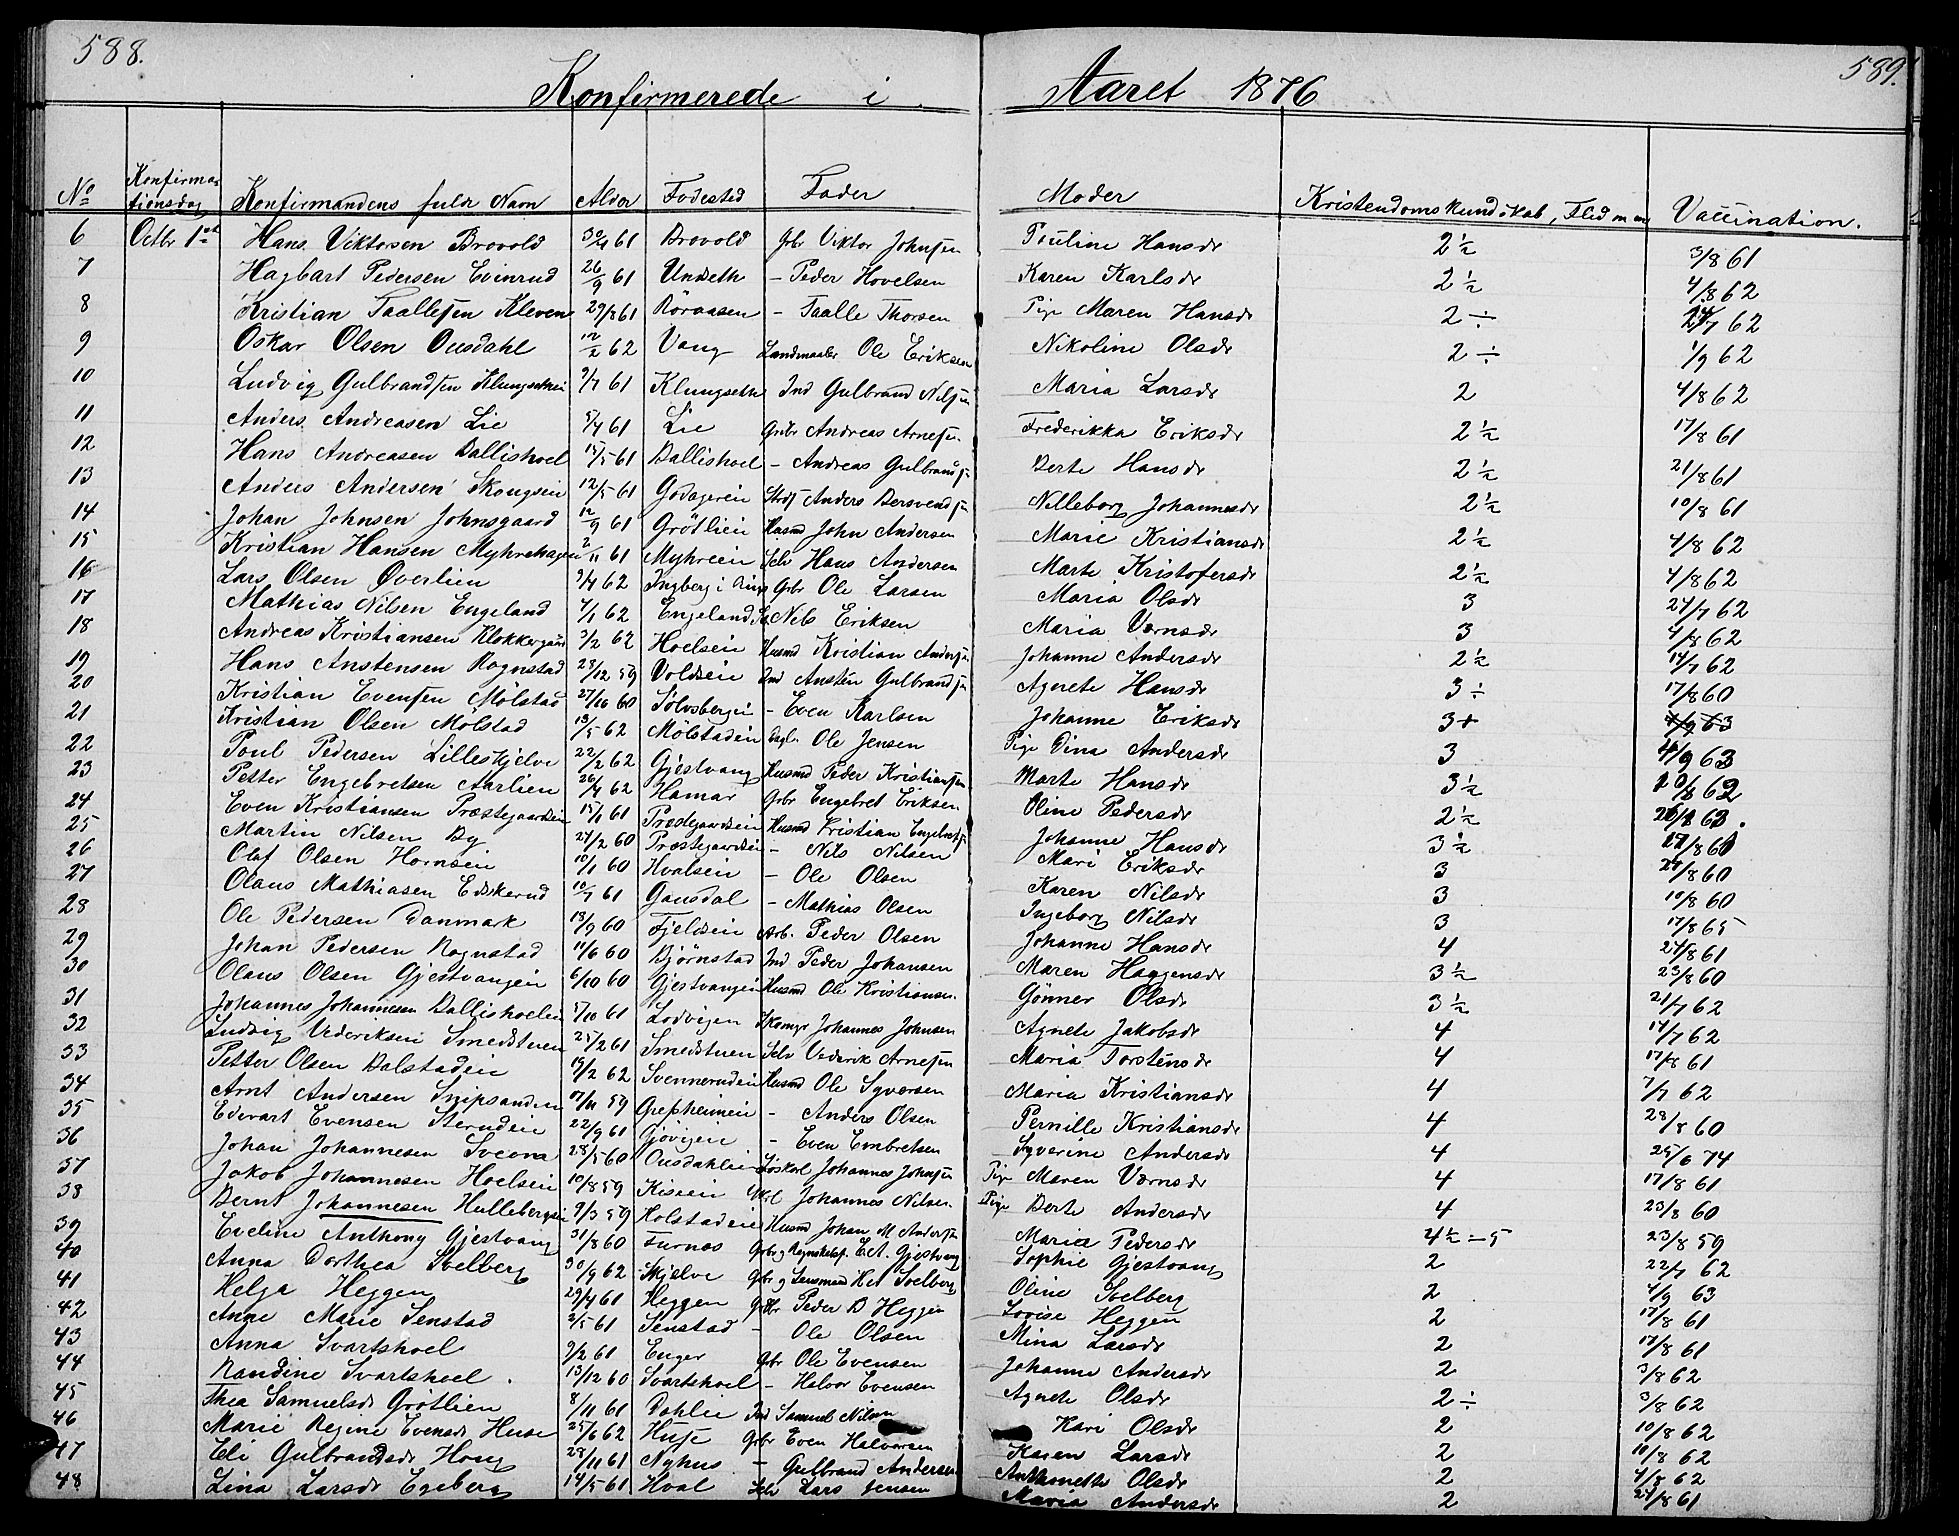 588.
589.
Konfirmerede i Aaret 1876
No Konfirmationsdag Konfirmandens fulde Navn Alder Fødested Fader Moder Kristendomskundskab, Flid m m Vaccination.
6 Octbr 1st Hans Viktorsen Brovold 61 Brovold Gbr Viktor Johnsen Pauline Hansdr 2½ 3/8 61
7 Hagbart Pedersen Evinrud 26/9 61 Undseth - Peder Hovelsen Karen Karlsdr 2½ 4/8 62
8 Kristian Taallesen Kleven 29/8 61 Röraasen - Taalle Thorsen Pige Maren Hansdr 2 ÷ 62
9 Oskar Olsen Ousdahl 12/2 62 Vang Landmaaler Ole Eriksen Nikoline Olsdr 2 ÷ 1/9 62
10 Ludvig Gulbrandsen 9/7 61 Klungseth Ind Gulbrand Nilsen Maria Larsdr 2 4/8 62
11 Anders Andreasen Lie 5/4 61 Lie Gbr Andreas Arnesen Frederikka Eriksdr 2½ 17/8 61
12 Hans Andreasen Dallishoel 15/5 61 Dallishoel - Andreas Gulbrands Berte Hansdr 2½ 21/8 61
13 Anders Andersen 12/5 61 Godagereie Anders Nilleborg Johannesdr 2½ 10/8 61
14 Johan Johnsen Johnsgaard 12/9 61 Grötlien Husmd John Andersen Marie Kristiansdr 2½ 4/8 62
15 Kristian Hansen Myhrehagen 2/11 61 Myhreeie Selv Hans Andersen Marte Kristofersdr 2½ 4/8 62
16 Lars Olsen Øverlien 62 Gbr Ole Larsen Maria Olsdr 3 24/7 62
17 Mathias Nilsen Engeland 4/1 62 Engeland Nils Eriksen Maria 3 4/8 62
18 Andreas Kristiansen 3/2 62 Hoelseie Husmd Kristian Andersen Johanne Andersdr 2½ 14/7 62
19 Hans Anstensen Rognstad 28/12 59 Voldseie Ind Ansten Gulbrands Agnete Hansdr 3 ÷ 17/8 60
20 Kristian Evensen Mølstad 27/10 60 - Even Karlsen Johanne Eriksdr 3+
21 Kristian Olsen Mølstad 13/5 62 Mølstadeie Ole Jensen Pige Dina Andersdr 3 63
22 Poul Pedersen Lilleskjelve 22/2 62 Gjestvang Husmd Peder Kristiansen Marte Hansdr 3½ 62
23 Petter Engebretsen Aarlien 26/4 62 Hamar Gbr Engebret Eriksen Oline Pedersdr 2½ 63.
24 Even Kristiansen Præstegaardseie 15/1 61 Præstegaardseie Husmd Kristian Johanne Hansdr 3½
25 Martin Nilsen By 27/2 60 Præstegaardseie - Nils Nilsen Mari Eriksdr 3 24/8 60
26 Olaf Olsen Hornseie 10/1 60 Hvalseie - Ole Olsen Karen Nilsdr 3 10/8 60
27 Olaus Mathiasen 10/7 61 Gausdal - Mathias Olsen Ingeborg Nilsdr 3 17/8 65
28 Ole Pedersen Danmark 13/9 60 Fjeldseie Arb. Peder Olsen Johanne Hansdr 4 24/8 61
29 Johan Pedersen Rognstad 11/6 60 Bjørnstad Ind Peder Johansen Maren Haagensdr 3½ 23/8 60
30 Olaus Olsen Gjestvangeie 6/10 60 Gjestvangeie Husmd Ole Kristiansen Gönner Olsdr 3½ 21/7 62
31 Johannes Johannesen Dallishoeleie 5/10 61 Johannes Johnsen Agnete Jakobsdr 4 14/7 62
32 Ludvig Vederiksen Smedstuen 25/2 61 Smedstuen Selv Vederik Arnesen Maria Torstensdr 4 17/8 61
33 Petter Olsen Dalstadeie 19/2 62 Svennerudeie Husmd Ole Syversen Maria Kristiansdr 4 7/7 62
34 Arnt Andersen 17/11 59 - Anders Olsen Pernille Kristiansdr 4 28/8 60
35 Edvart Evensen 22/9 61 Gjövigeie - Even Embretsen Syverine Andersdr 4 25/6 74
36 Johan Johannesen 28/5 60 Ousdahleie Johannes Johnsen Pige Maren 4 17/8 61
37 Jakob Johannesen Hoelseie 10/8 59 Johannes Nilsen Pige Berte Andersdr 4 23/8 60
38 Bernt Johannesen 9/3 59 Holstadeie Husmd Johan M Andersen Maria Pedersdr 4½-5 23/8 59
39 Eveline Anthony Gjestvang 31/8 60 Furnæs Gbr g Gjestvang Sophie Gjestvang 2 22/7 62
40 Anna Dorthea Sœlberg 30/9 62 Skjelve Gbr g Lensmand Oline 2 4/9 63
41 Helga Heggen 29/4 61 Heggen Gbr Peder D Heggen Lovise Heggen 2 17/8 61
42 Anne Marie Senstad 2/5 61 Senstad - Ole Olsen Mina Larsdr 2 17/8 61
43 Anna Svartshoel 9/2 61 Enger Gbr Ole Evensen Johanne Andersdr 2 3/8 62
44 Randine Svartshoel. 13/12 60 Svartshoel - Halvor Evensen Agnete Olsdr 2 ÷ 3/8 62
45 Thea Samuelsdr Grötlien 8/11 61 Dahlie Ind Samuel Nilsen Kari Olsdr 2 10/8 62
46 Marie Regine Evensdr Huse 25/6 62 Huse Gbr Even Halvorsen Karen Larsdr 2 10/8 62
47 Eli Gulbrandsdr Houg 28/11 61 Nyhus - Gulbrand Andersen Anthonette Olsdr 2 4/8 62
48 Lina Larsdr Egeberg 14/5 61 Hval Selv Lars Jensen Maria Andersdr 2 24/8 61